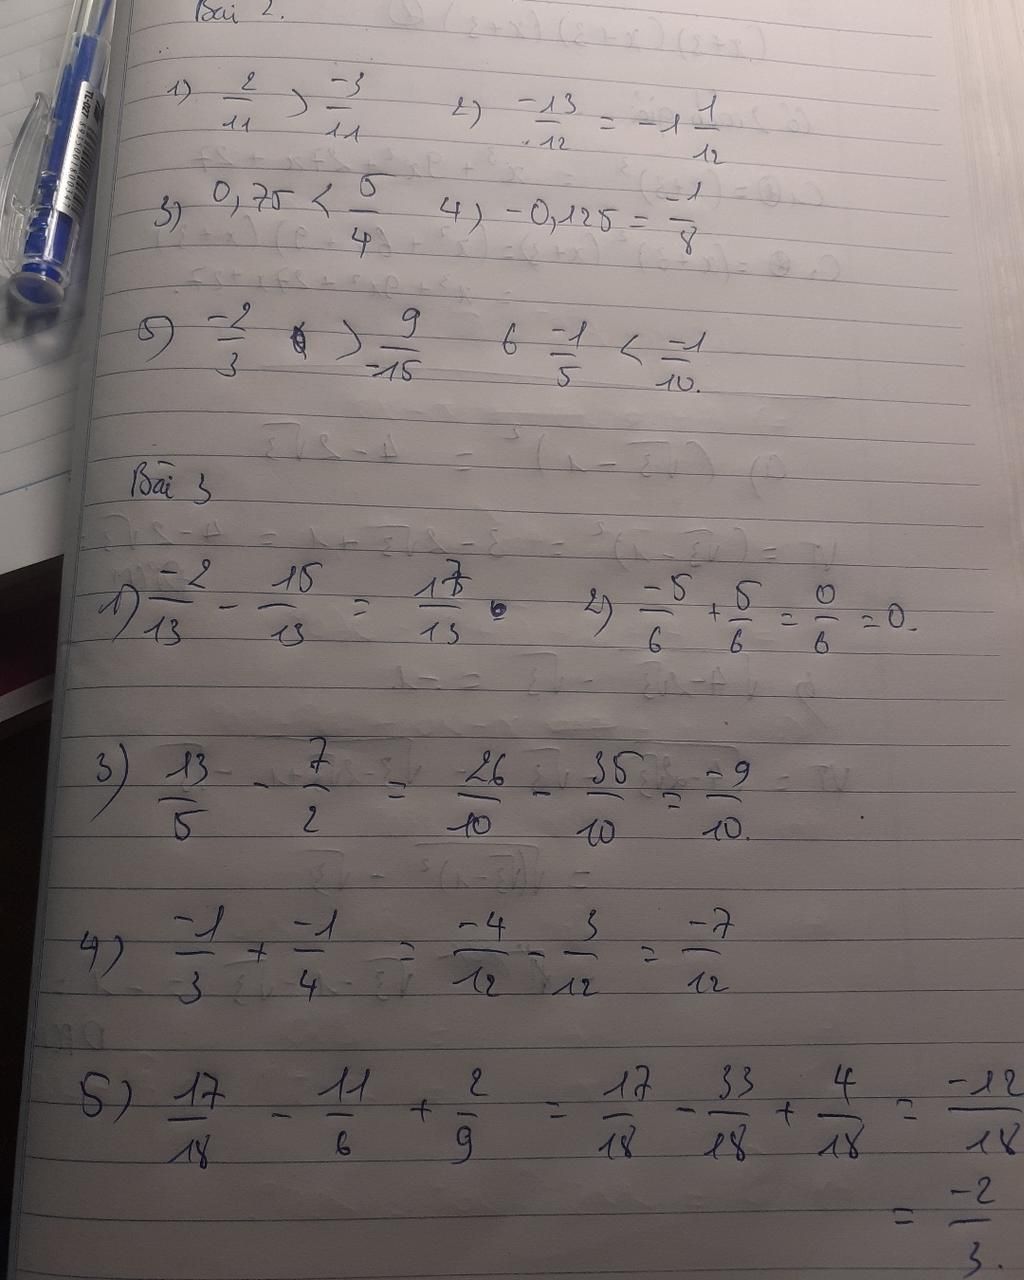 Bài 2.
1) 2/11 > -3/11 2) -13/12 = -1 1/12
3) 0,75 < 5/4 4) -0,125 = -1/8
5) -2/3 > 9/-15 6 -1/5 < -1/10.
Bài 3
1) -2/13 - 15/13 = 17/13 2) -5/6 + 5/6 = 0/6 = 0.
3) 13/5 - 7/2 = 26/10 - 35/10 = -9/10.
4) -1/3 + -1/4 = -4/12 - 3/12 = -7/12
5) 17/18 - 11/6 + 2/9 = 17/18 - 33/18 + 4/18 = -12/18
= -2/3.